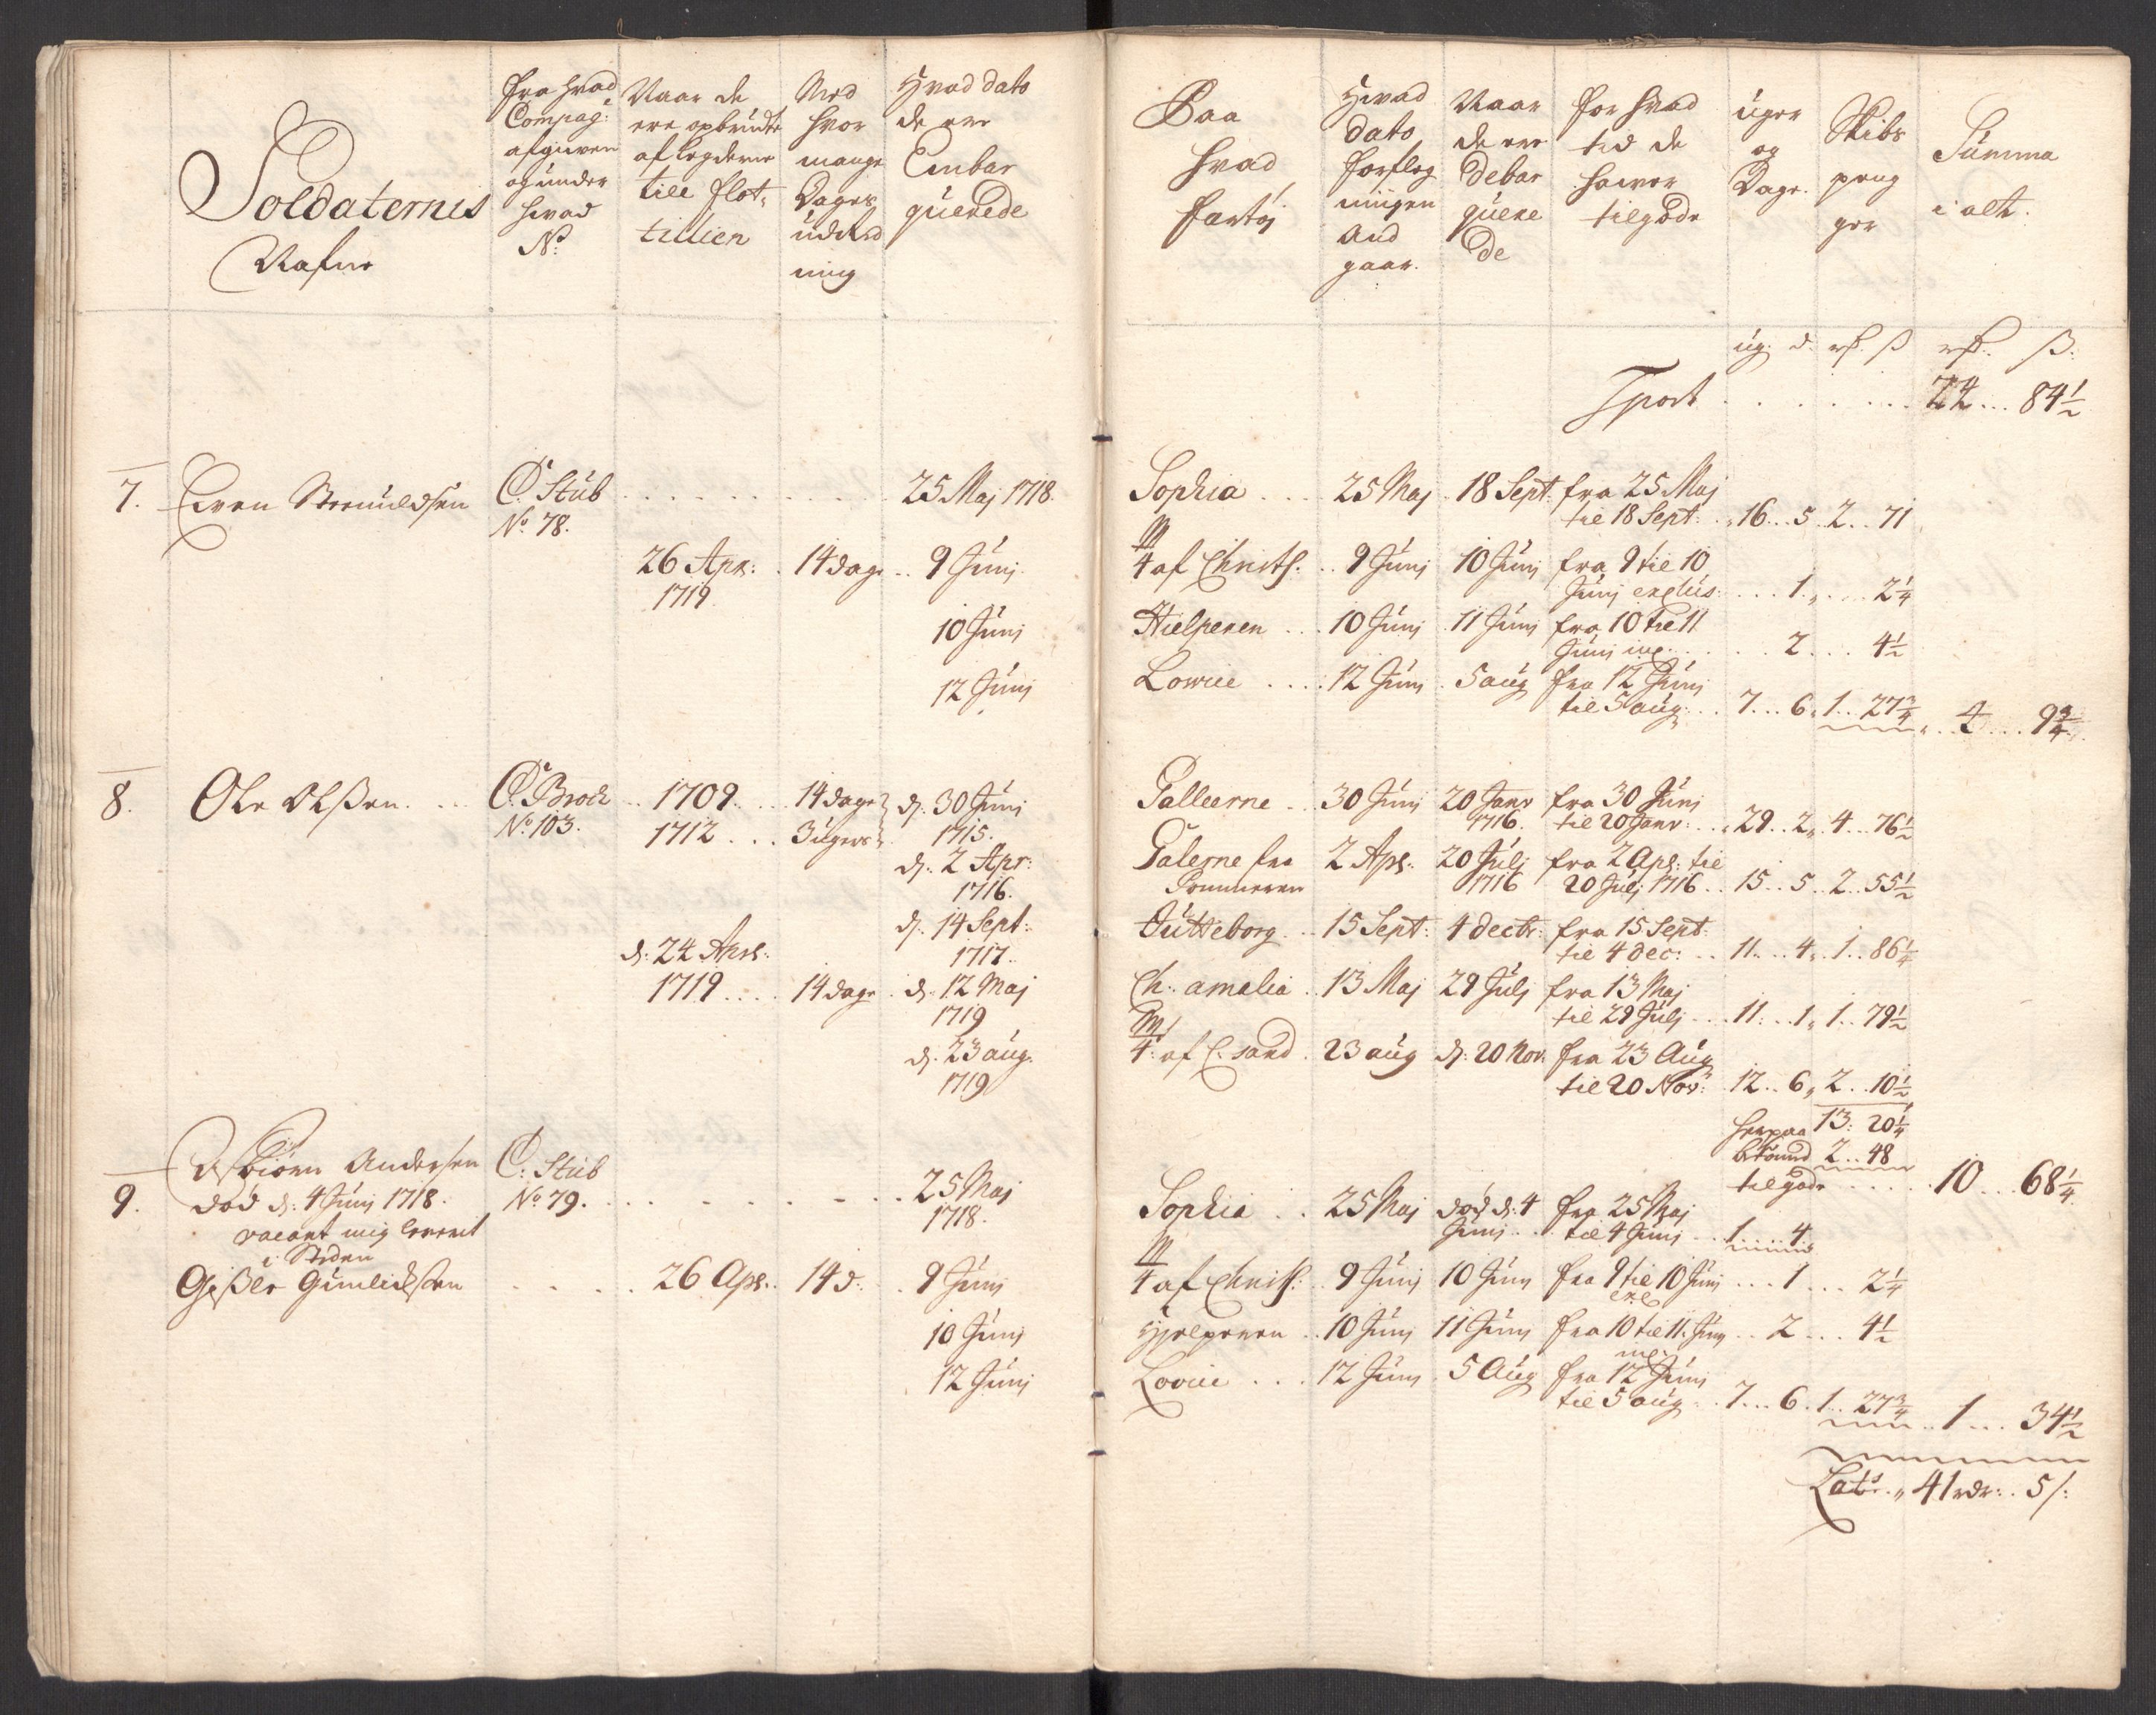 Soldaternis
Nafne
fra hvad
Compag:
afgiven
og under
hvad
No:
Naar de
ere opbrudte
af Legderne
till flot-
tillien
Med
hvor
mange
Dages
udred
ning
Hvad dato
de ere
Embar
querede
Paa
hvad
fartøj
Hvad
dato
forpleg
ningen
And
gaar.
Naar
de ere
debar
quere
de
for hvad
tid de
haver
tilgode
uger
og
Dage.
Skibs
peng
ger
Summa
i alt.
ug: d. rd. ß rd. ß:
Tport . . . . . . 24 ... 84½
7. Even C. Stub . . . . . . 25 Maj 1718.
No. 78.
Sophia ... 25 Maj 18 Sept: fra 25 Maj
til 18 Sept: . 16 .. 5 . 2 .. 71
26 Apr: . 14 dage .. 9 Junj
1719
¾ af Christ: .. 9 Junj 10 Junj fra 9 til 10
Junj exclus: ... 1 .. 2¼
10 Junj
Hielperen ... 10 Junj 11 Junj fra 10 til 11
Junj inc. . . . 2 ... 4½
12 Junj
Lowise .... 12 Junj . 5 aug fra 12 Junj
til 5 aug: . 7 ... 6 . 1 .. 27¾ . 4 ... 9¾
8. Ole Olßen. ... C. Brock .. 1709. ... 14 dage d. 30 Junj
No. 103. 1712 ... 3 uger 1715.
d. 2 Apr:
1716.
d. 14 Sept:
1717.
d. 24 Aprl:
1719 .... 14 dage . d. 12 Maj
1719
d. 23 aug.
1719
Galleerne .. 30 Junj 20 Janr fra 30 Junj
1716. til 20 Janr: .. 29 .. 2 . 4 ... 76½
Galerne fra 2 Apr: 20 Julj fra 2 Apr: til
Pommeren 1716 20 Julj 1716 .. 15 .. 5 .. 2 .. 55½
Gütteborg .. 15 Sept: 4 decbr: fra 15 Sept:
til 4 dec: .. 11 .. 4 . 1 .. 86¼
Ch: amalia . 13 Maj 29 Julj fra 13 Maj
til 29 Julj ... 11 .. 1 . 1 .. 79½
¾ af C. sand . 23 aug d. 20 Nov. fra 23 Aug
til 20 Nov: 12 .. 6 . 2 .. 10½
herpaa 13: 20¼
2 .. 48
tilgode . . . . . 10 ... 68¼
Asbiörn Andersen C: Stub
9. död d: 4 Junj 1718. No. 79. . . . . . . 25 Maj
vacant mig leveret 1718.
i Steden
Gißle . . . . 26 Apr: . 14 d: . 9 Junj
10 Junj
12 Junj
Sophia .. 25 Maj död d: 4 fra 25 Maj
Junj ... til 4 Junj .. 1 .... 4
¾ af Christ: .. 9 Junj 10 Junj fra 9 til 10 Junj ... 1 ... 2¼
excl
Hjelperen .. 10 Junj 11 Junj fra 10 til 11. Junj .. 2 ... 4½
inc.
Lovise ... 12 Junj . 5 Aug fra 12 Junj
til 5 aug . 7 ... 6 . 1 .. 27¾ .. 1 ... 34½
Lats. " 41 rdr: . 5 ß: